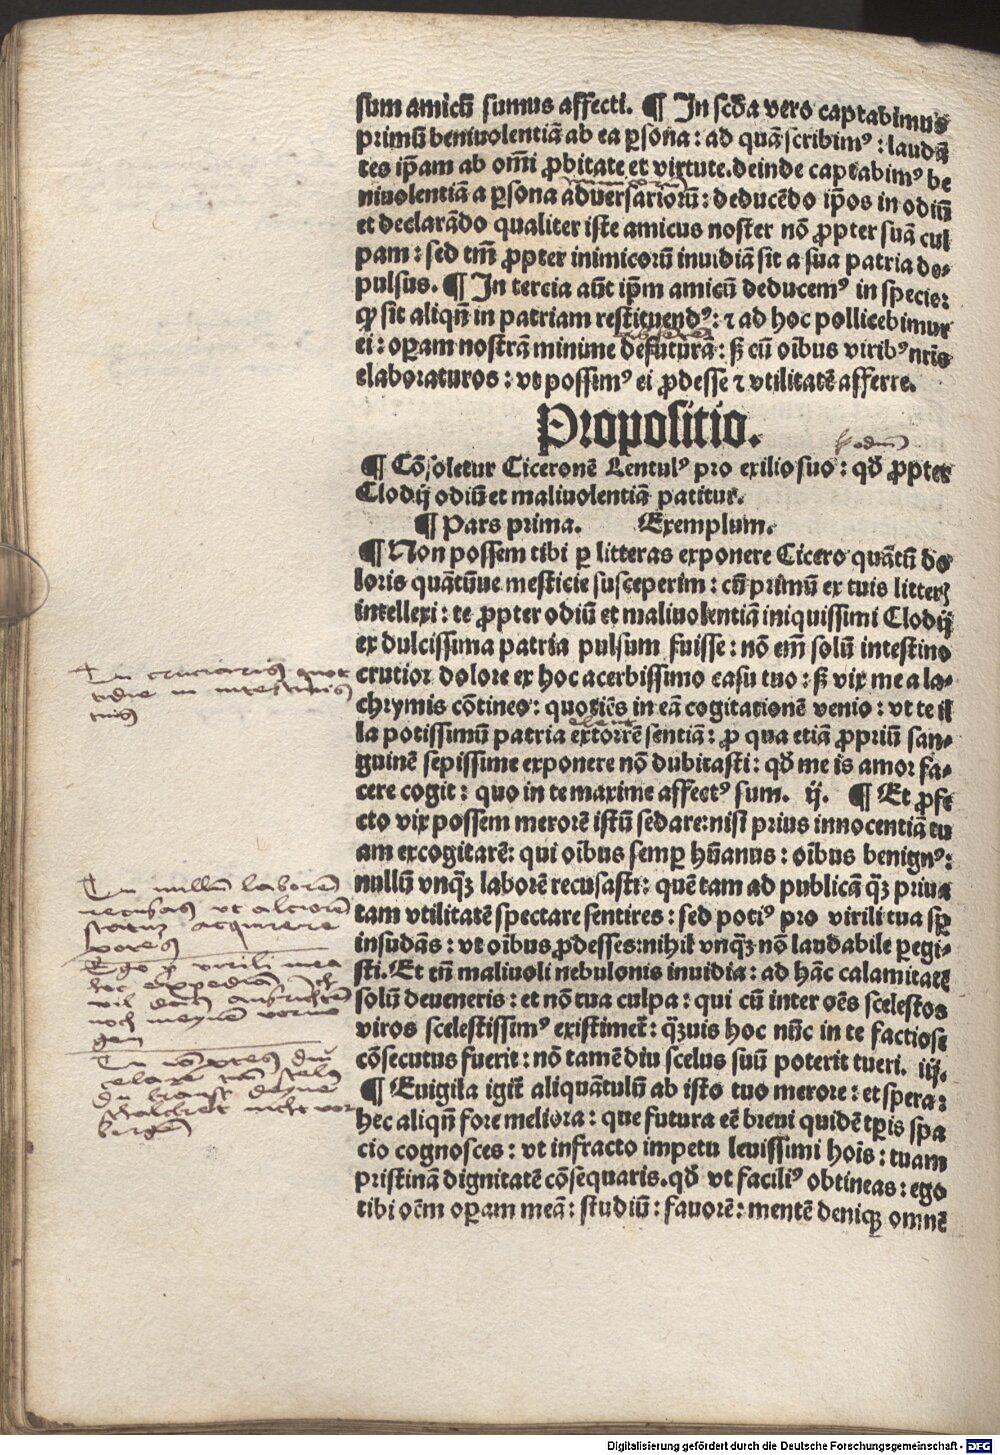 sum amicū sumus affecti. ¶ In scd̄a vero captabimus
primū beniuolentiā ab ea ꝑsona : ad quā scribimꝰ : laudā
tes ip̄am ab om̄i ꝓbitate et virtute. deinde captabimꝰ be
niuolentiā a ꝑsona aduersarioꝝ : deducēdo ip̄os in odiū
et declarādo qualiter iste amicus noster nō ꝓpter suā cul
pam : sed tm̄ ꝓpter inimicorū inuidiā sit a sua patria de⸗
pulsus. ¶ In tercia aūt ip̄m amicū deducemꝰ in spē cie:
ꝙ sit aliqn̄ in patriam restituendꝰ : ⁊ ad hoc pollicebimur
ei : oꝑam nostrā minime defuturā : sꝫ cū oībus viribꝰ nr̄is
elaboraturos : vt possimꝰ ei ꝓdesse ⁊ vtilitatē afferre.
Propositio.
¶ Cōsoletur Ciceronē Lentulꝰ pro exilio suo : qd̄ ꝓpter
Clodij odiū et maliuolentiā patitur.
¶ Pars prima. Exemplum.
¶ Non possem tibi ꝑ litteras exponere Cicero quātū do
loris quātūue mesticie susceperim : cū primū ex tuis litterꝭ
intellexi : te ꝓpter odiū et maliuolentiā iniquissimi Clodij
ex dulcissima patria pulsum fuisse : nō em̄ solū intestino
crutior dolore ex hoc acerbissimo casu tuo : sꝫ vix me a la⸗
chrymis cōtineo : quotiēs in eā cogitationē venio : vt te il
la potissimū patria extorrē sentiā : ꝓ qua etiā ꝓpriū san⸗
guinē sepissime exponere nō dubitasti : qd̄ me is amor fa⸗
cere cogit : quo in te maxime affectꝰ sum. ij. ¶ Et ꝓfe
cto vix possem merorē istū sedare: nisi prius innocentiā tu
am excogitarē: qui oībus semꝑ hūanus : oībus benignꝰ:
nullū vnqꝫ̄ laborē recusasti : quē tam ad publicā qꝫ̄ priua
tam vtilitatē spectare sentires : sed potiꝰ pro virili tua sꝑ
insudās : vt oībus ꝓdesses: nihil vnqꝫ̄ nō laudabile ꝑegi⸗
sti. Et cū maliuoli nebulonis inuidia : ad hāc calamitatē
solū deueneris : et nō tua culpa : qui cū inter oēs scelestos
viros scelestissimꝰ existimet̄ : qꝫ̄uis hoc nūc in te factiose
cōsecutus fuerit : nō tamē diu scelus suū poterit tueri. iij.
¶ Euigila igit̄ aliquātulū ab isto tuo merore : et spera:
hec aliqn̄ fore meliora : que futura eē breui quidē tꝑis spa
cio cognosces : vt infracto impetu leuissimi hoīs : tuam
pristinā dignitatē cōsequaris. qd̄ vt faciliꝰ obtineas : ego
tibi oēm oꝑam meā : studiū : fauorē : mentē deniqꝫ omnē
Tu cruciaris quot
tidie in intestinis
tuis
Tu nullū laborē
recusas vt alciorē
statū acquirere
potes
Ego ꝓ virili mea
hoc expediā ich
wil dath ausrichtē
noch meynē vormo
gen
du kanst deyne
schalckeit nicht vor
bergē
Digitalisierung gefördert durch die Deutsche Forschungsgemeinschaft - DFG